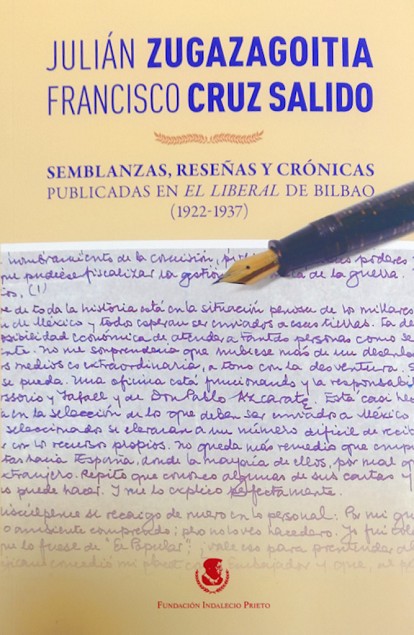 JULIÁN ZUGAZAGOITIA
FRANCISCO CRUZ SALIDO
SEMBLANZAS, RESEÑAS Y CRÓNICAS
PUBLICADAS EN EL LIBERAL DE BILBAO
(1922-1937)
nombramiento de la comisión, poderes
que pudiese fiscalizar la de la guerra.
(1)
de toda la historia está en la situación penosa de 10 millares
de México y todos esperan ser enviados a esas tierras. La
sibilidad económica de atender a tantas personas como se
No me sorprendería que hubiese más de un
medios es extraordinaria, a tono con la desventura
se pueda. Una oficina está funcionando y la responsabil
y Lafall y de Don Pablo Azcárate. Está casi
en la selección de los que deben ser enviados a México
seleccionado se elevaran a un número difícil de
con los recursos propios. No queda más remedio que
hacia España, donde la mayoría de ellos, por mal
extranjero. Repito que conozco algunas de sus cartas y
puede hacer. Y me lo explico perfectamente.
se recargo de nuevo en lo personal. Por mi
comprendo; pero no lo veo hacedero. Yo fui
que lo fuese de "El Popular"; vale eso para pretender
concedió mi Embajador y que,
FUNDACIÓN INDALECIO PRIETO